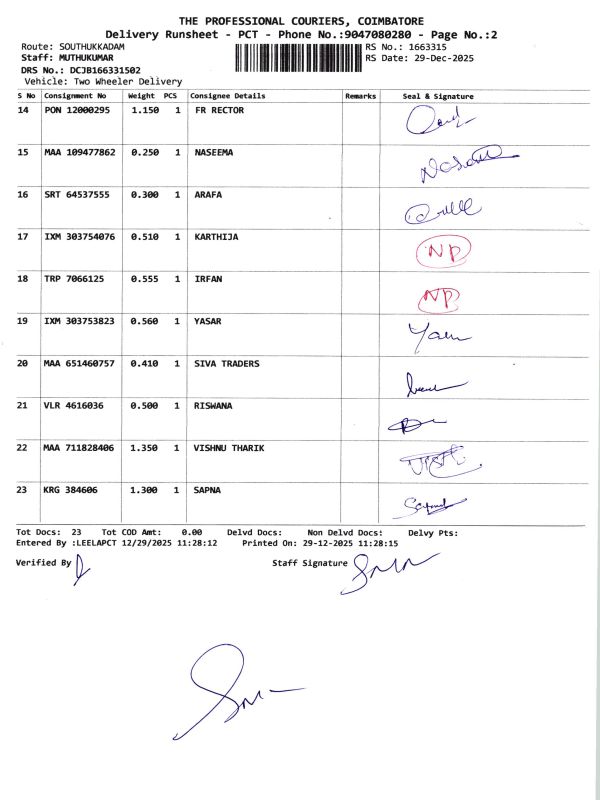 THE PROFESSIONAL COURIERS, COIMBATORE
Delivery Runsheet - PCT - Phone No.:9047080280 - Page No.:2
Route: SOUTHUKKADAM RS No.: 1663315
Staff: MUTHUKUMAR RS Date: 29-Dec-2025
DRS No.: DCJB166331502
Vehicle: Two Wheeler Delivery
S No Consignment No Weight PCS Consignee Details Remarks Seal & Signature
14 PON 12000295 1.150 1 FR RECTOR
15 MAA 109477862 0.250 1 NASEEMA
16 SRT 64537555 0.300 1 ARAFA
17 IXM 303754076 0.510 1 KARTHIJA NP
18 TRP 7066125 0.555 1 IRFAN NP
19 IXM 303753823 0.560 1 YASAR
20 MAA 651460757 0.410 1 SIVA TRADERS
21 VLR 4616036 0.500 1 RISWANA
22 MAA 711828406 1.350 1 VISHNU THARIK
23 KRG 384606 1.300 1 SAPNA
Tot Docs: 23 Tot COD Amt: 0.00 Delvd Docs: Non Delvd Docs: Delvy Pts:
Entered By :LEELAPCT 12/29/2025 11:28:12 Printed On: 29-12-2025 11:28:15
Verified By Staff Signature